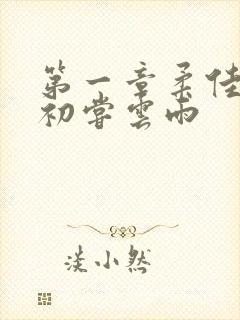 第一章柔佳
初尝雲雨
淡小然